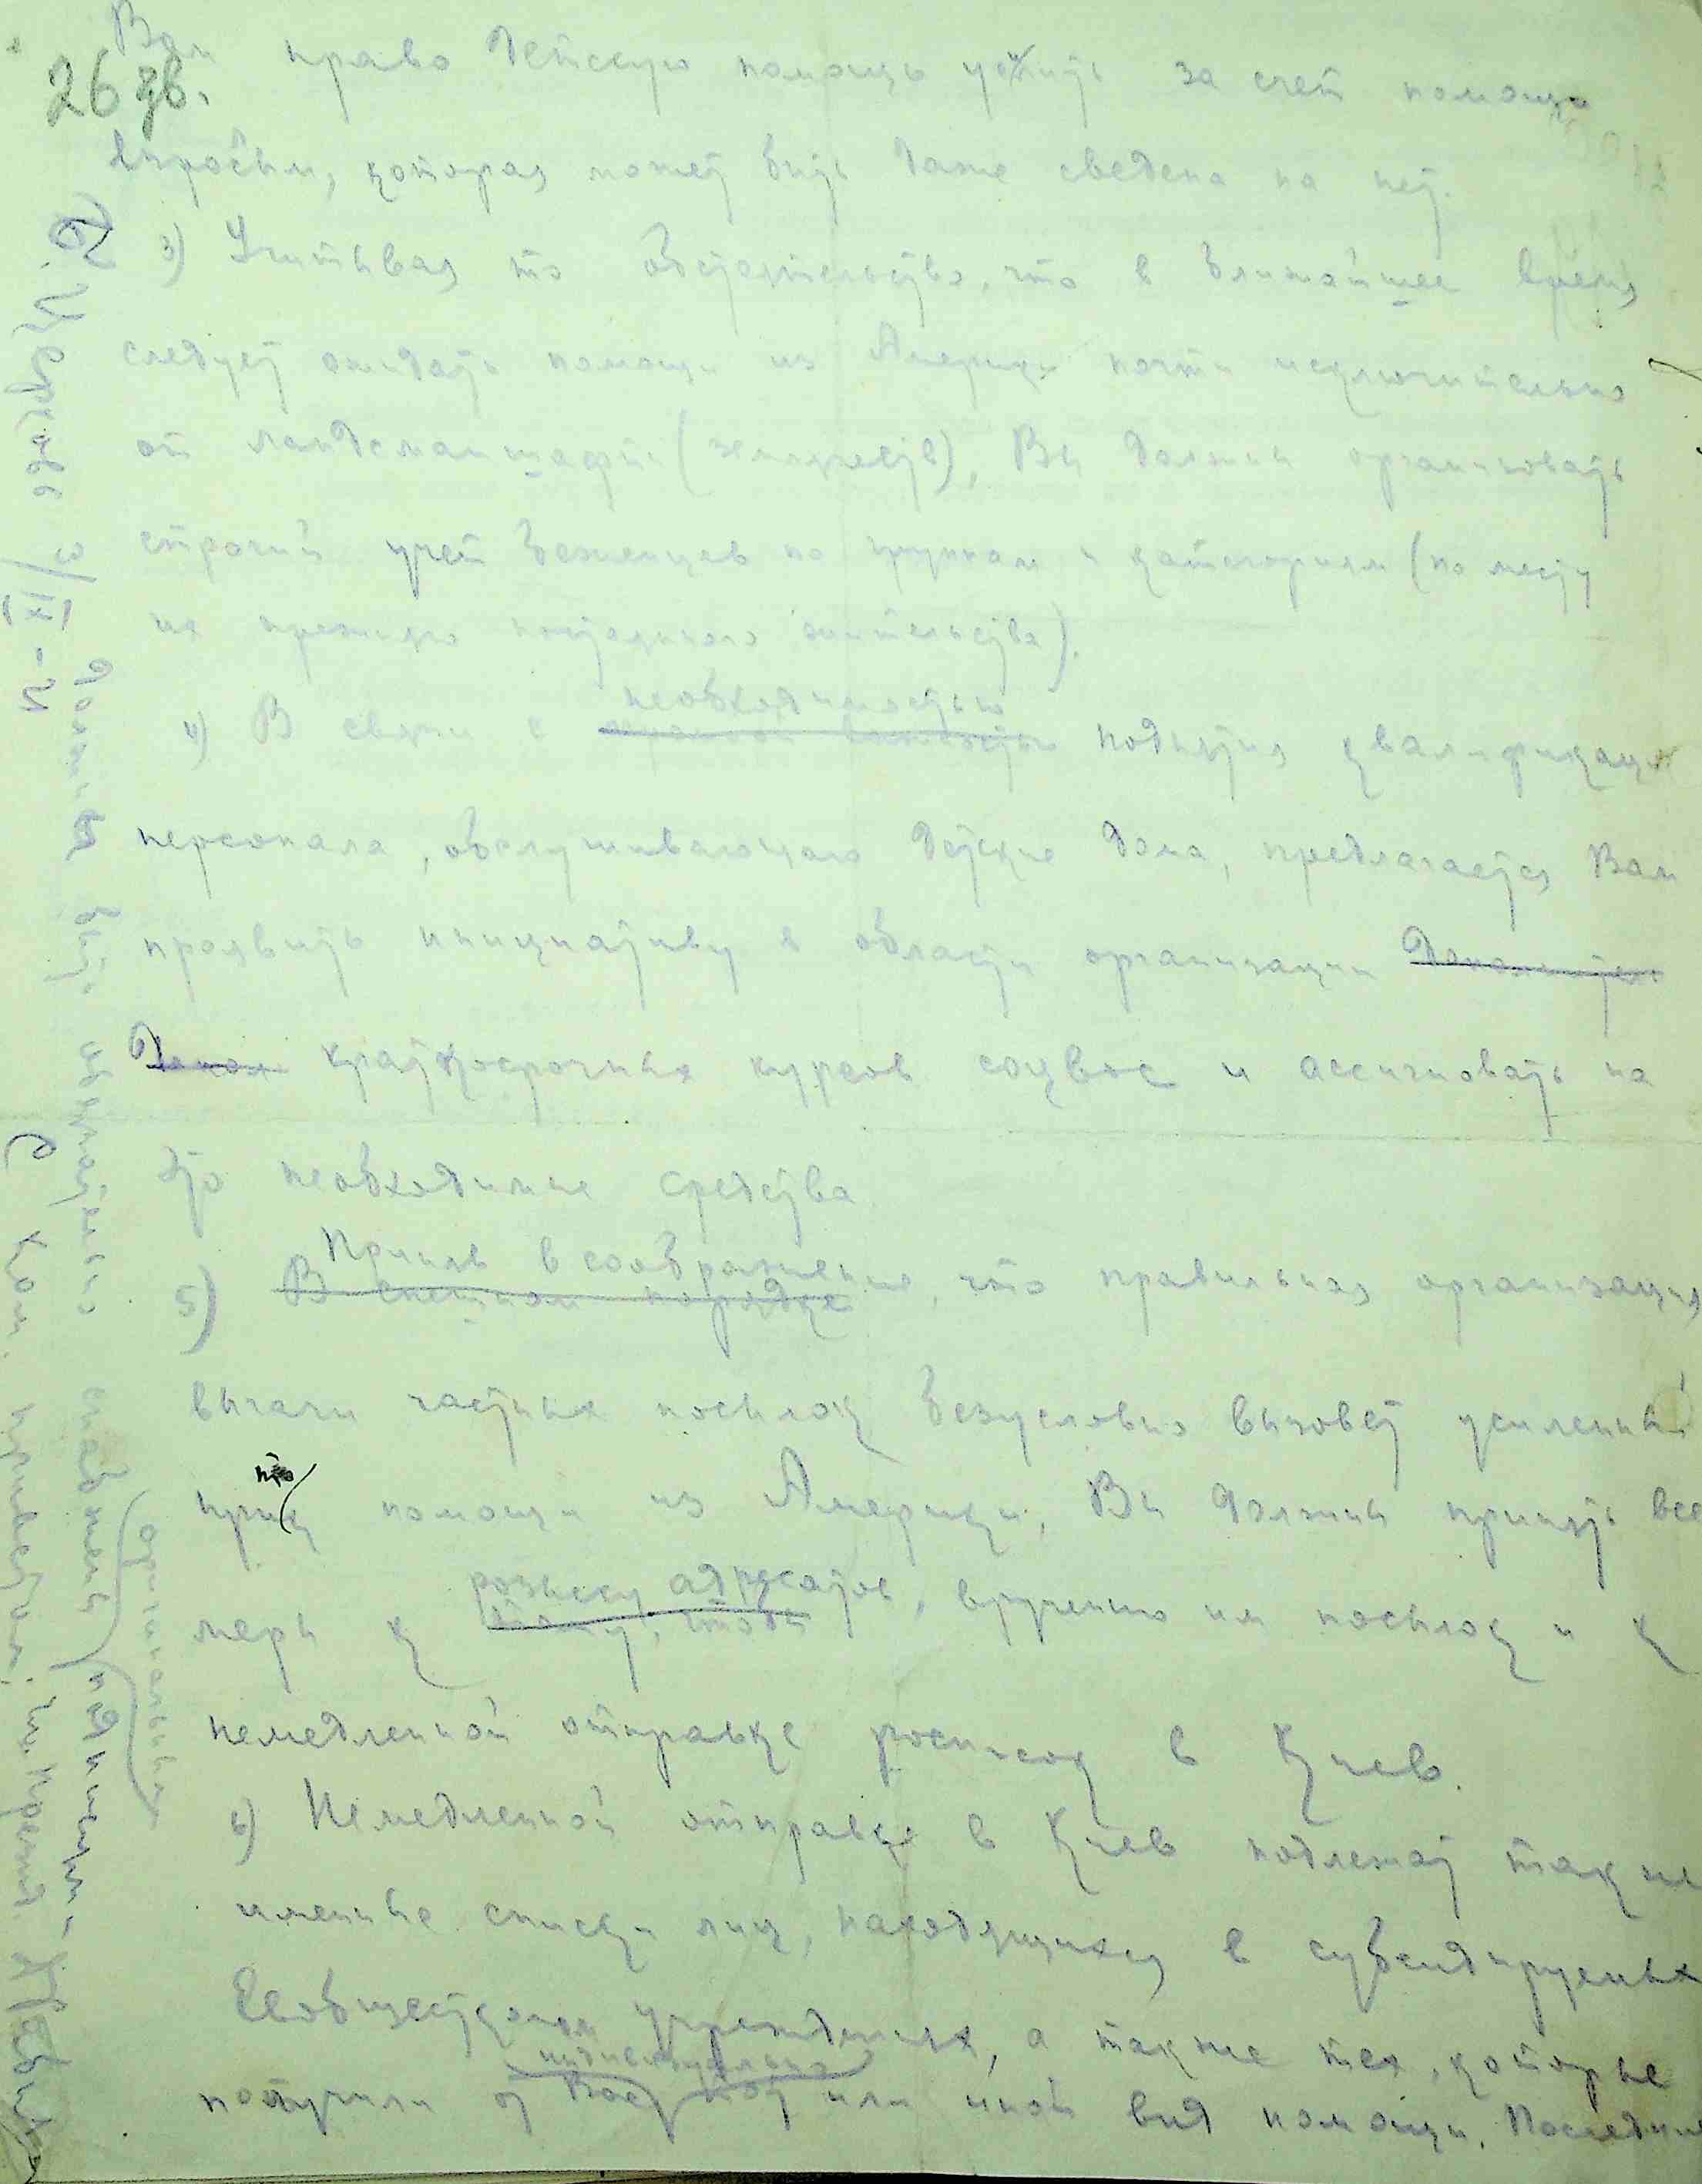 26 зв.
Вам право детскую помощь усилить за счет помощи
взрослым, которая может быть даже сведена на нет.
3) Учитывая то обстоятельство, что в ближайшее время
следует ожидать помощи из Америки почти исключительно
от ландсманшафтн (землячеств), Вы должны организовать
строгий учет беженцев по группам и категориям (по месту
их прежнего постоянного жительства).
необходимостью
4) В связи с поднятия квалификации
персонала, обслуживающего детские дома, предлагается Вам
проявить инициативу в области организации
краткосрочных курсов соцвос и ассигновать на
это необходимые средства
Приняв в соображение, что правильная организация
5) В спешном порядке
выдачи частных посылок безусловно вызовет усиленный
приток помощи из Америки, Вы должны принять все
розыску адресатов, вручению им посылок и к
меры к тому, чтобы
немедленной отправке расписок в Киев.
6) Немедленной отправке в Киев подлежат также
именные списки лиц, находящихся в субсидируемых
Евобщесткомом учреждениях, а также тех, которые
индивидуально
получили от Вас тот или иной вид помощи. Последние
должны быть обязательно снабжены
(оригинальными)
подписями
С ком. приветом